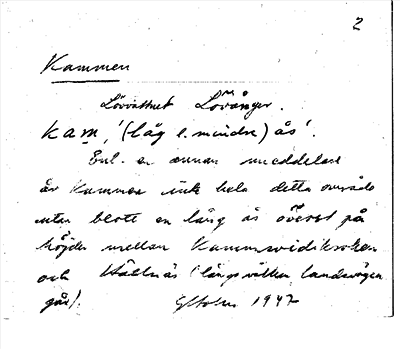 2
Kammen
Lövvattnet Lövånger.
kam, '(låg l. mindre) ås'.
Enl. en annan meddelare
är Kammen inte hela detta område
utan blott en lång ås överst på
höjden mellan
och Hällnäs (längs vilken landsvägen
går).
1947